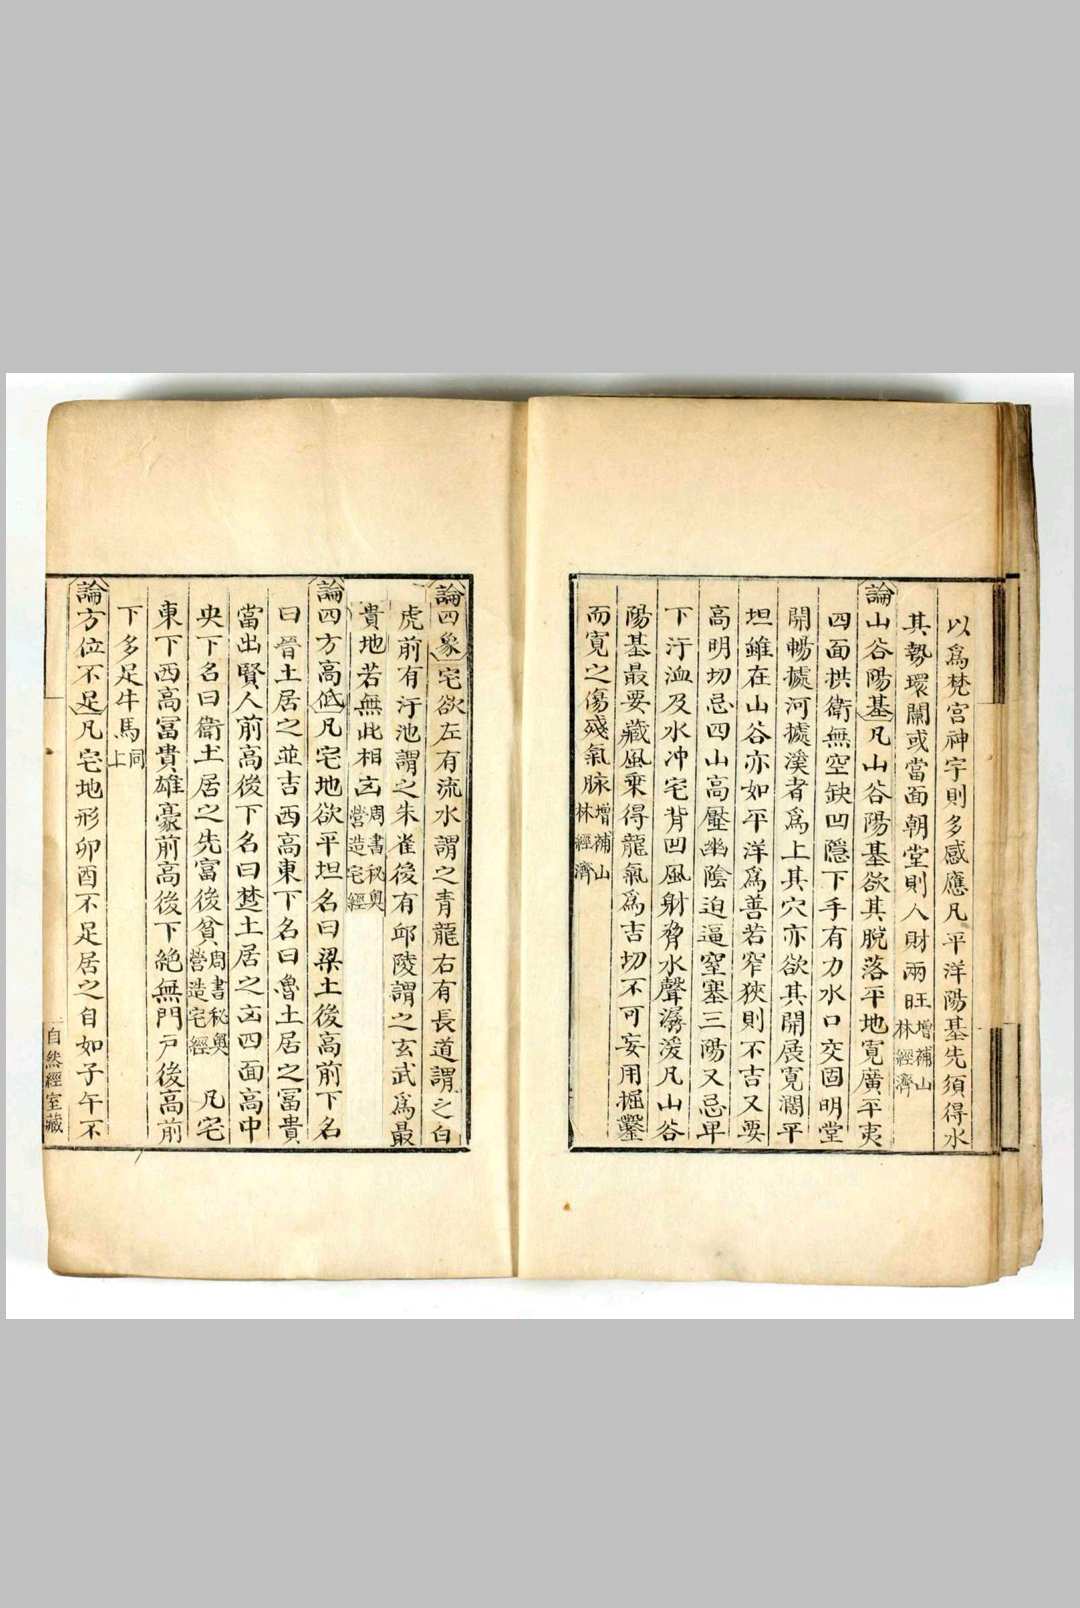 以爲梵宮神宇則多感應凡平洋陽基先須得水
其勢環闌或當面朝堂則人財兩旺增補山林經濟
論山谷陽基凡山谷陽基欲其脫落平地寛廣平夷
四面拱衛無空缺凹隱下手有力水口交固明堂
開暢據河據溪者爲上其穴亦欲其開展寛濶平
坦雖在山谷亦如平洋爲善若窄狹則不吉又要
高明切忌四山高壓幽陰迫逼窒塞三陽又忌卑
下汙洫及水冲宅背凹風射脅水聲潺湲凡山谷
陽基最要藏風乗得龍氣爲吉切不可妄用掘鑿
而寛之傷殘氣脉增補山林經濟
論四象宅欲左有流水謂之青龍右有長道謂之白
虎前有汙池謂之朱雀後有邱陵謂之玄武爲最
貴地若無此相㐫周書秘奧營造宅經
論四方高低凡宅地欲平坦名曰梁土後高前下名
曰晉土居之並吉西高東下名曰魯土居之冨貴
當出賢人前高後下名曰楚土居之㐫四面高中
央下名曰衛土居之先富後貧周書秘奧營造宅經 凡宅
東下西高冨貴雄豪前高後下絶無門戸後高前
下多足牛馬同上
論方位不足凡宅地形卯酉不足居之自如子午不
自然經室藏